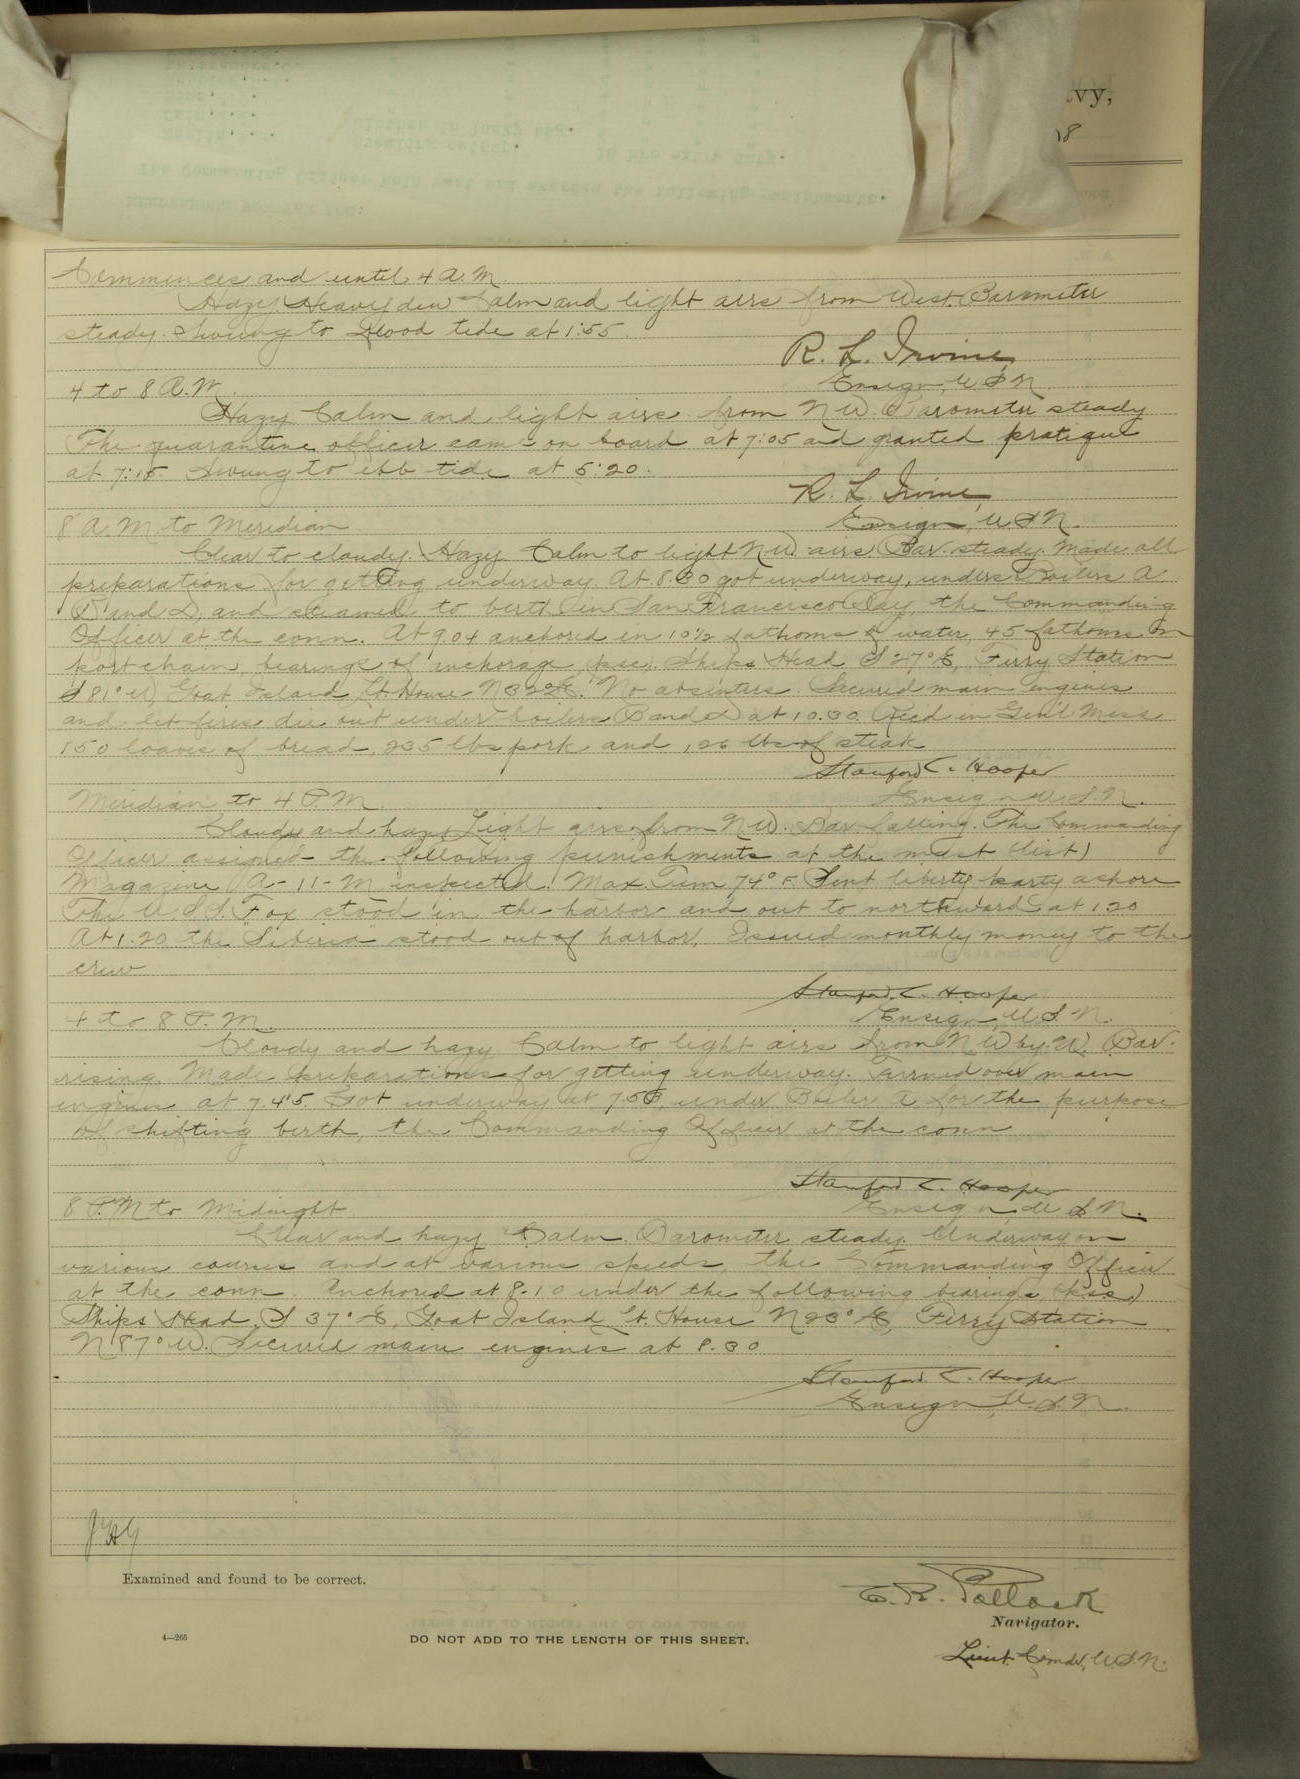 avy,
Commences and until 4 A.M.
Hazy. Heavy dew Calm and light airs from West. Barometer
steady. Swung to flood tide at 1:55.
R. L. Irvine,
Ensign, U.S.N.
4 to 8 A.M.
Hazy Calm and light airs from NW. Barometer steady
The quarantine officer came on board at 7:05 and granted pratique
at 7:15. Swung to ebb tide at 5:20.
R. L. Irvine,
Ensign, U.S.N.
8 A.M to Meridian
Clear to cloudy. Hazy Calm to light NW airs, Bar. steady. Made all
preparations for getting underway. At 8.30 got underway, under Boilers A
B and D, and steamed to berth in San Francisco Bay, the Commanding
Officer at the conn. At 9.04 anchored in 10½ fathoms of water, 45 fathoms on
port chain, bearings of anchorage (psc) Ships Head S 27° E, Ferry Station
S 81° W, Goat Island Lt. House N 32° E. No absentees. Secured main engines
and let fires die out under boilers B and D at 10.30. Rec'd in Gen'l Mess
150 loaves of bread, 235 lbs pork and 126 lbs of steak
Stanford C. Hooper
Ensign U.S.N.
Meridian to 4 P.M.
Cloudy and hazy Light airs from NW. Bar falling. The Commanding
Officer assigned the following punishments at the mast (list)
Magazine A-11-M inspected. Max Tem 74° F. Sent liberty party ashore
The U.S.S. Fox stood in the harbor and out to northward at 1.20
At 1.20 the "Siberia" stood out of harbor, Issued monthly money to the
crew
Stanford C. Hooper
Ensign, U.S.N.
4 to 8 P.M.
Cloudy and hazy Calm to light airs from NW by W. Bar.
rising. Made preparations for getting underway. Turned over main
engines at 7.45. Got underway at 7.58, under Boiler A for the purpose
of shifting berth, the Commanding Officer at the conn
Stanford C. Hooper
Ensign, U.S.N.
8 P.M to Midnight
Clear and hazy Calm. Barometer steady. Underway on
various courses and at various speeds, the Commanding Officer
at the conn. Anchored at 8.10 under the following bearings (psc)
Ships Head S 37° E, Goat Island Lt. House N 23° E, Ferry Station
N 87° W. Secured main engines at 8.30
Stanford C. Hooper
Ensign, U.S.N.
Examined and found to be correct.
E. R. Pollock
Navigator.
4—265
DO NOT ADD TO THE LENGTH OF THIS SHEET.
Lieut. Comdr, U.S.N.